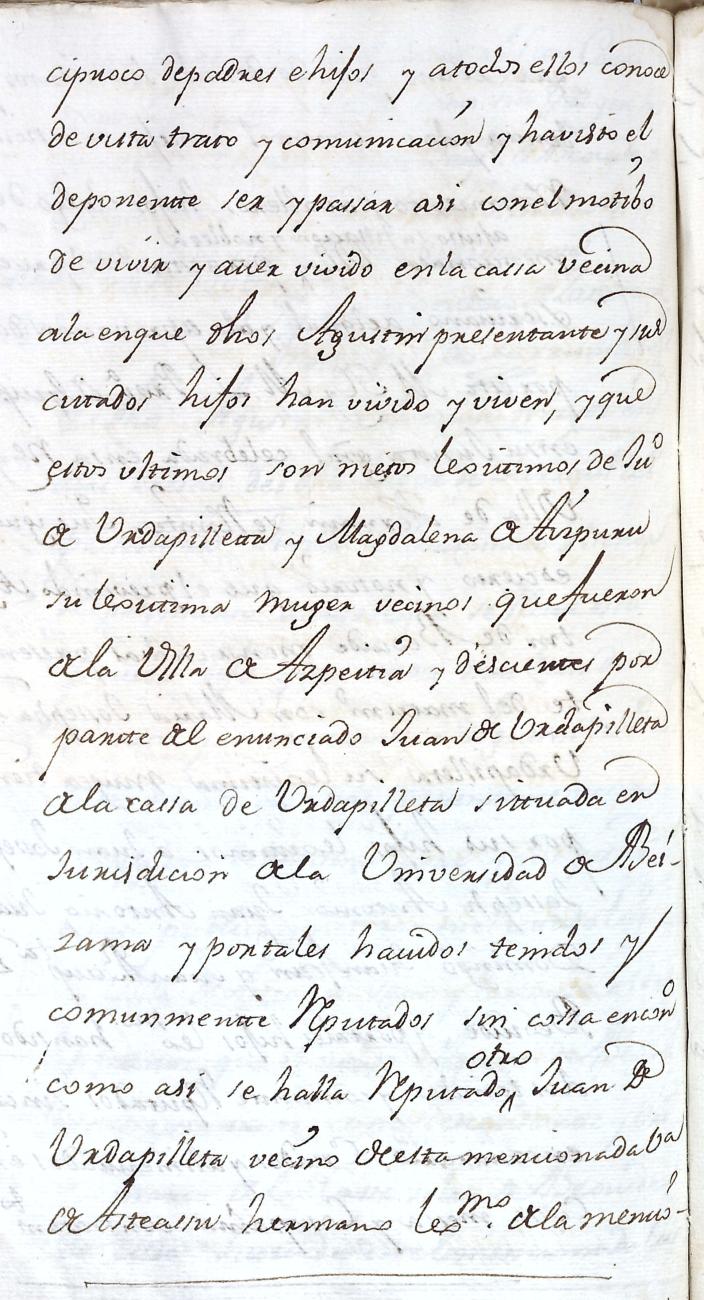 ciproco depadres e hijos y atodos ellos conoce
de vista trato y comunicación y havisto el
deponentte ser y passar asi conel motibo
de vivir y aver vivido enla cassa vecina
ala enque dhos Agustin presentante y sus
cittados hijos han vivido y viven, y que
estos ultimos son nietos lexitimos de Juº
de Urdapilletta y Magdalena de Aizpuru
su lexitima muger vecinos que fueron
de la Villa de Azpeitia y descientes por
partte del enunciado Juan de Urdapilleta
de la cassa de Urdapilleta sittuada en
Jurisdicion de la Universidad de Bei-
zama y portales havidos tenidos y
comunmentte Reputados sin cossa encon
como asi se halla Reputado otro Juan de
Urdapilleta vecino de esta mencionada Va
de Asteassu hermano lexmo. de la menció-